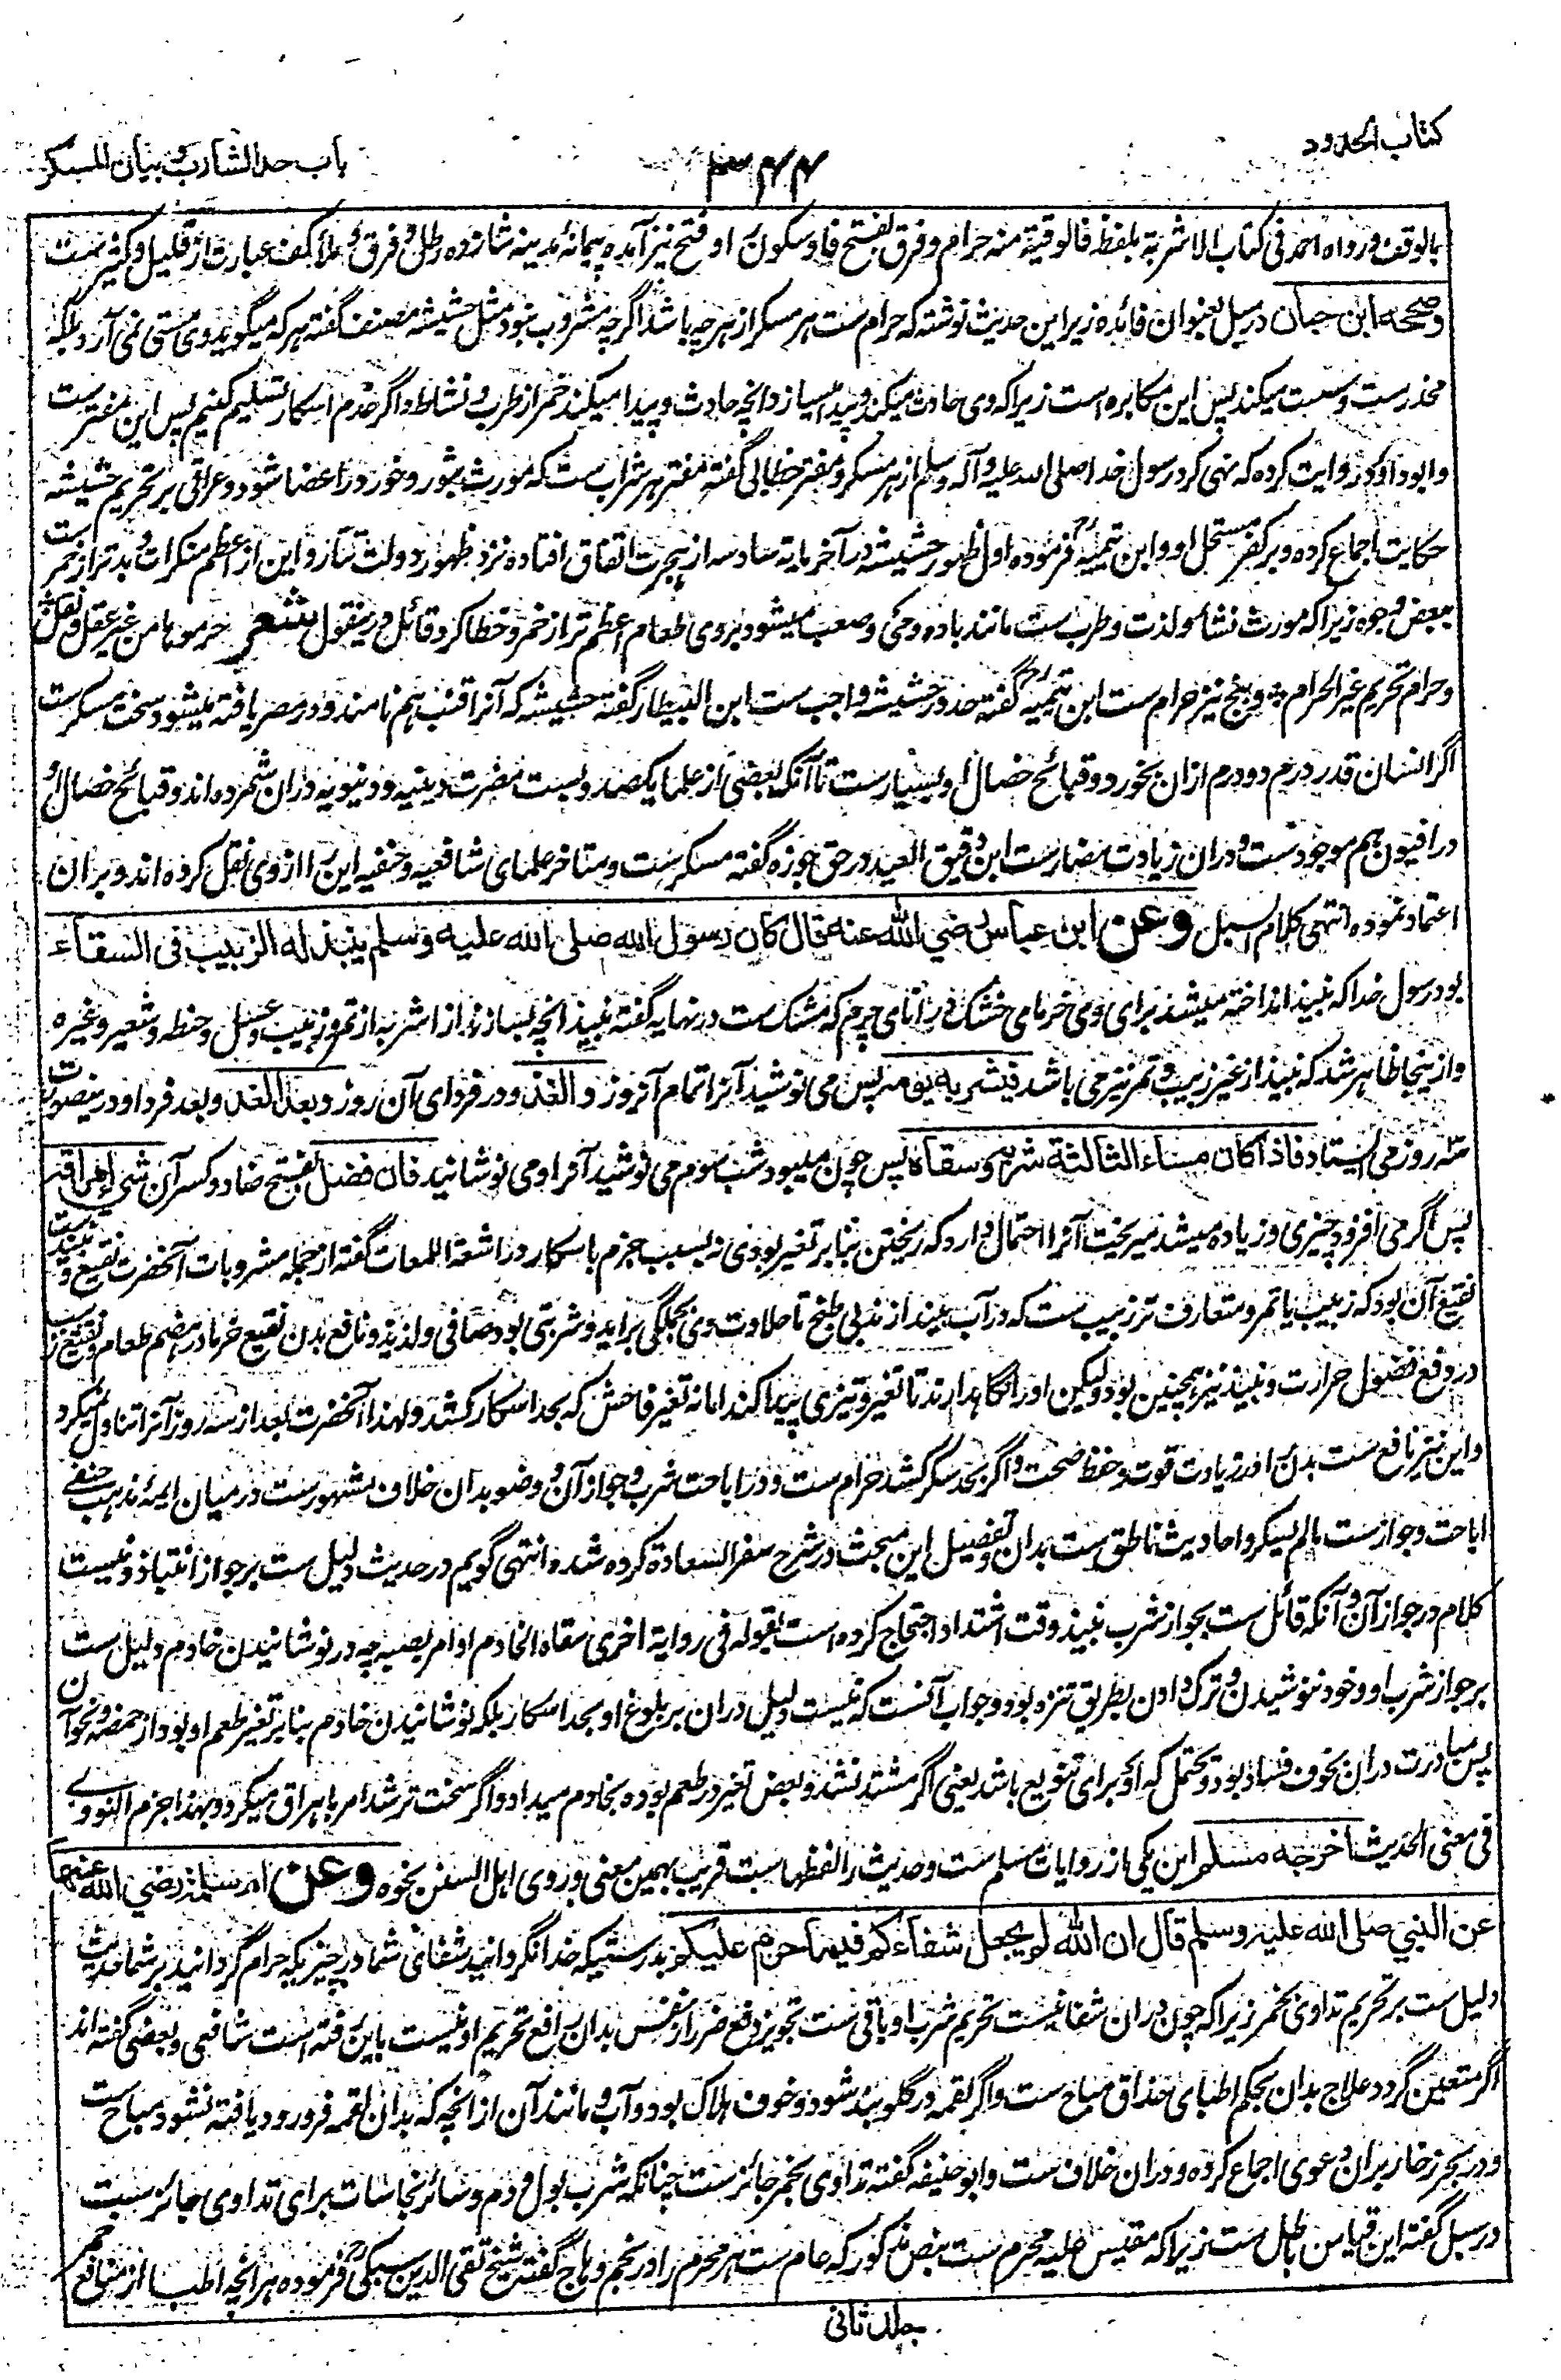 کتاب الحدود
۳۴۴
باب حد الشارب و بیان المسکر
بالوقف و رواه احمد فی کتاب الاشربة بلفظ فالوقیة منه حرام و فرق بفتح فا و سکون را و فتح نیز آمده پیمانهٔ مدینه شانزده رطل و فرق و ملأ کف عبارت از قلیل و کثیر ست
و صححه ابن حبان در سبل بعنوان فائده زیر این حدیث نوشته که حرام ست هر مسکر از هر چه باشد اگرچه مشروب نبود مثل حشیشه مصنف گفته هر که میگوید وی مستی نمی آرد بلکه
مخدرست و سست میکند پس این مکابره است زیرا که وی حادث میکند و پیدا میسازد آنچه حادث و پیدا میکند خمر از طرب و نشاط و اگر عدم اسکار تسلیم کنیم پس این مفترست
و ابوداود روایت کرده که نهی کرد رسول خدا صلی الله علیه و آله وسلم از هر مسکر و مفتر خطابی گفته مفتر هر شراب ست که مورث فتور و خور در اعضا شود و عراقی بر تحریم حشیشه
حکایت اجماع کرده و بر کفر مستحل او و ابن تیمیه رح فرموده اول ظهور حشیشه در آخر مایة سادسه از هجرت اتفاق افتاده نزد ظهور دولت تتار و این از اعظم منکرات و بدتر از خمر ست
ببعض وجوه زیرا که مورث نشأه و لذت و طرب ست مانند باده و حمی و صعب میشود بروی طعام اعظم تر از خمر و خطا کرد قائل در ینقول شعر حرموها من غیر عقل و نقل
و حرام تحریم غیر الحرام و بنج نیز حرام ست ابن تیمیه رح گفته حد در حشیشه واجب ست ابن البیطار گفته حشیشه که آنرا قنب هم نامند و در مصر یافته میشود سخت مسکر ست
اگر انسان قدر درم دو درم ازان بخورد و قبائح خصال او بسیارست تا آنکه بعضی از علما یکصد و بست مضرت دینیه و دنیویه دران شمرده اند و قبائح خصال او
در افیون هم موجودست و دران زیادت مضارست ابن دقیق العید در حق جوزه گفته مسکرست و متأخر علمای شافعیه و حنفیه این را از وی نقل کرده اند و بران
اعتماد نموده انتهی کلام السبل وعن ابن عباس رضی الله عنه قال کان رسول الله صلی الله علیه وسلم ینبذ له الزبیب فی السقاء
بود رسول خدا که نبیذ انداخته میشد برای وی خرمای خشک در انای چرم که مشک ست در نهایه گفته نبیذ آنچه بسازند از اشربه از تمر و زبیب و عسل و حنطه و شعیر و غیره
و از ینجا ظاهر شد که نبیذ از غیر زبیب و تمر نیز می باشد فیشربه یومه پس می نوشید آنرا تمام آنروز و الغد و در فردای آن روز و بعد الغد و بعد فردا و درینصورت
سه روز می ایستاد فاذا کان مساء الثالثة شربه و سقاه پس چون میبود شب سوم می نوشید آنرا و می نوشانید فان فضل بفتح ضاد و کسر آن شی اهراقه
پس اگر می افزود چیزی و زیاده میشد میریخت آنرا احتمال دارد که ریختن بنا بر تغیر بودی نه بسبب جزم باسکار در اشعة اللمعات گفته از جمله مشروبات آنحضرت نقیع و نبیذست
نقیع آن بود که زبیب یا تمر و متعارف تر زبیب ست که در آب بیندازند بی طبخ تا حلاوت وی بجملگی براید و شربتی بود صافی و لذیذ و نافع بدن نقیع خرما در هضم طعام و نقیع زبیب
در دفع فضول حرارت و نبیذ نیز همچنین بود ولیکن او را نگاهدارند تا تغیر و تیزی پیدا کند اما نه تغیر فاحش که بحد اسکار کشد و لهذا آنحضرت بعد از سه روز آنرا تناول نمیکرد
و این نیز نافع ست بدن را در زیادت قوت و حفظ صحت و اگر بحد سکر کشد حرام ست و در اباحت شرب و جواز آن و وضو بدان خلاف مشهورست در میان ایمه مذهب حنفی
اباحت و جوازست ما لم یسکر و احادیث ناطق ست بدان و تفصیل این مبحث در شرح سفر السعادة کرده شد و انتهی گویم در حدیث دلیل ست بر جواز انتباذ و نیست
کلام در جواز آن و آنکه قائل ست بجواز شرب نبیذ وقت اشتداد احتجاج کرده است بقوله فی روایة اخری سقاه الخادم او امر بصبه چه در نوشانیدن خادم دلیل ست
بر جواز شرب او و خود ننوشیدن و ترک دادن بطریق تنزه بود و جواب آنست که نیست دلیل دران بر بلوغ او بحد اسکار بلکه نوشانیدن خادم بنا بر تغیر طعم او بود از حمضه و نحو آن
پس مبادرت دران بخوف فساد بود و تحتمل که او برای تنویع باشد یعنی اگر مشتد نشد و بعض تغیر در طعم بوده بخادم میداد و اگر سخت تر شد امر باهراق میکرد و بهذا جزم النووی
فی معنی الحدیث اخرجه مسلم این یکی از روایات مسلم ست و حدیث را لفظهاست قریب بهمین معنی و روی اهل السنن نحوه وعن ام سلمة رضی الله عنها
عن النبی صلی الله علیه وسلم قال ان الله لم یجعل شفاءکم فیما حرم علیکم بدرستیکه خدا نگردانید شفای شما در چیزیکه حرام گردانید بر شما حدیث
دلیل ست بر تحریم تداوی بخمر زیرا که چون دران شفا نیست تحریم شرب او باقی ست تجویز دفع ضرر از نفس بدان رافع تحریم او نیست باین رفته است شافعی و بعضی گفته اند
اگر متعین گردد علاج بدان بحکم اطبای حذاق مباح ست و اگر لقمه در گلو بند شود و خوف هلاک بود و آب و مانند آن از آنچه که بدان لقمه فرو رود یافته نشود مباح ست
و در بحر زخار بران دعوی اجماع کرده و دران خلاف ست و ابو حنیفه گفته تداوی بخمر جائزست چنانکه شرب بول و دم و سائر نجاسات برای تداوی جائزست
در سبل گفته این قیاس باطل ست زیرا که مقیس علیه محرم ست بنص مذکور که عام ست هر محرم را در نجم وهاج گفته شیخ تقی الدین سبکی رح فرموده هر آنچه اطبا از منافع خمر
جلد ثانی